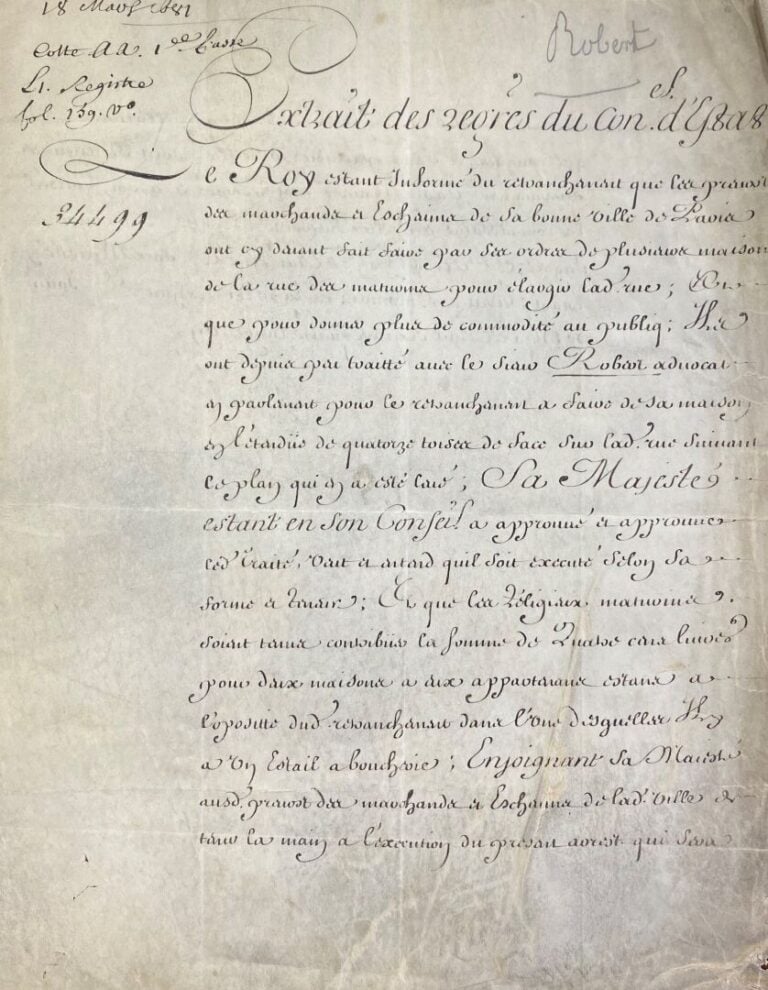 18 Mars 1681
Cotte AA. 1.ere Liasse
L1. Registre
fol. 139. vo.
34499
Robert
Extrait des regres du Con.el d'Estat
Le Roy estant Informé du retranchement que les prevost
des marchands et Eschevins de sa bonne ville de Paris
ont cy devant fait faire par ses ordres de plusieurs maisons
de la rue des mathurins pour élargir lad. rue; Et
que pour donner plus de commodité au publiq; Ils
ont depuis peu traitté avec le sieur Robert advocat
en parlement pour le retranchement a faire de sa maison
en l'étendüe de quatorze toises de face sur lad. rue suivant
le plan qui en a esté levé; Sa Majesté
estant en Son Conseil a approuvé et approuve
led. traité, Veut et entend quil soit executé selon sa
forme et teneur; Et que les Religieux mathurins
soient tenus contribüer la somme de Quatre cens livres
pour deux maisons a eux appartenans estans a
l'oposite dud. retranchement dans l'une desquelles Il y
a Un Estail a boucherie; Enjoignant Sa Majesté
ausd. prevost des marchands et Eschevins de lad. ville de
tenir la main a l'execution du present arrest qui sera